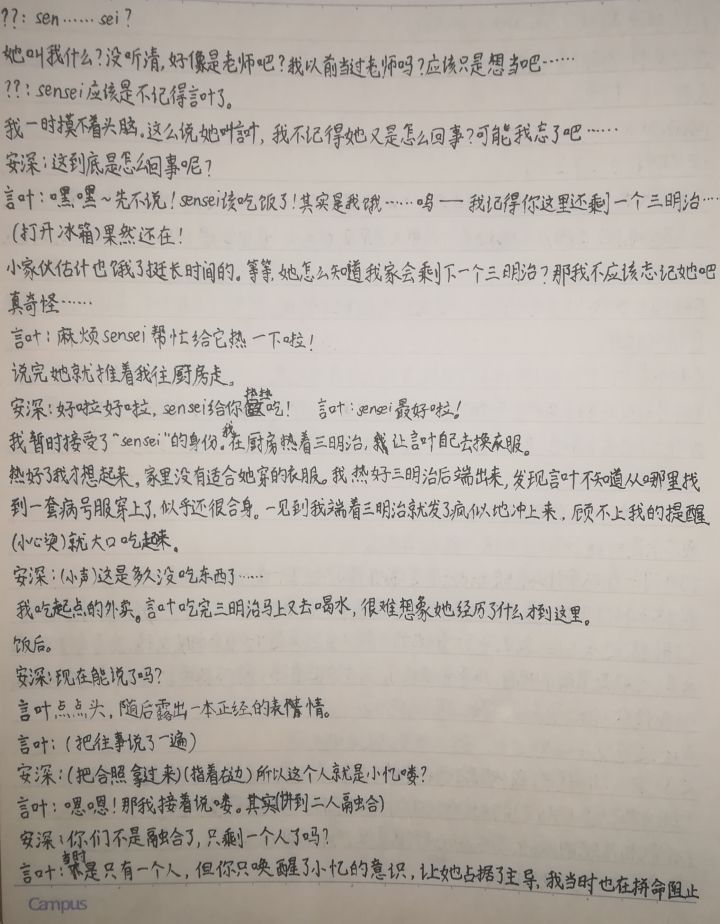 ??: sen……sei?
她叫我什么?没听清,好像是老师吧?我以前当过老师吗?应该只是想当吧……
??: sensei应该是不记得言叶了。
我一时摸不着头脑。这么说她叫言叶,我不记得她又是怎么回事?可能我忘了吧……
安深:这到底是怎么回事呢?
言叶:嘿嘿~先不说!sensei该吃饭了!其实是我饿……呜——我记得你这里还剩一个三明治……
(打开冰箱)果然还在!
小家伙估计也饿了挺长时间的。等等,她怎么知道我家会剩下一个三明治?那我不应该忘记她吧
真奇怪……
言叶:麻烦sensei帮忙给它热一下啦!
说完她就推着我往厨房走。
安深:好啦好啦,sensei给你热热吃! 言叶:sensei最好啦!
我暂时接受了“sensei”的身份。我在厨房热着三明治,让言叶自己去换衣服。
热好了我才想起来,家里没有适合她穿的衣服。我热好三明治后端出来,发现言叶不知道从哪里找
到一套病号服穿上了,似乎还很合身。一见到我端着三明治就发了疯似地冲上来,顾不上我的提醒
(小心烫)就大口吃起来。
安深:(小声)这是多久没吃东西了……
我吃起点的外卖。言叶吃完三明治马上又去喝水,很难想象她经历了什么才到这里。
饭后。
安深:现在能说了吗?
言叶点点头,随后露出一本正经的表情。
言叶:(把往事说了一遍)
安深:(把合照拿过来)(指着右边)所以这个人就是小忆喽?
言叶:嗯嗯!那我接着说喽。其实(讲到二人融合)
安深:你们不是融合了,只剩一个人了吗?
言叶:当时是只有一个人,但你只唤醒了小忆的意识,让她占据了主导,我当时也在拼命阻止
Campus